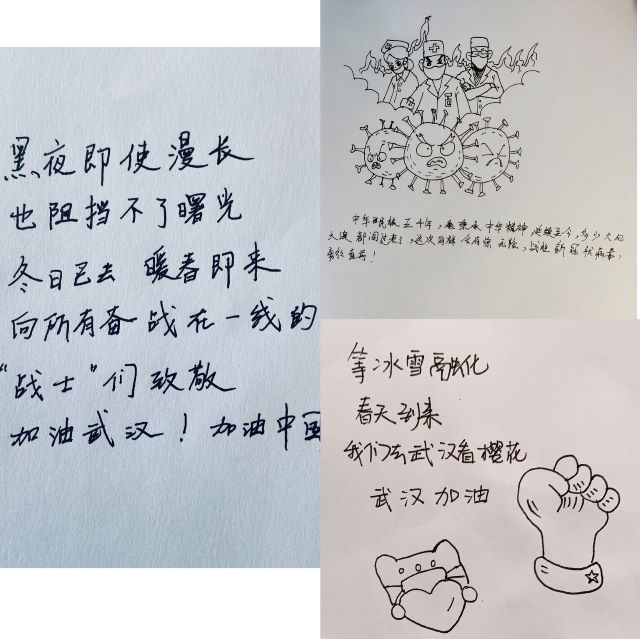 黑夜即使漫长
也阻挡不了曙光
冬日已去 暖春即来
向所有奋战在一线的
“战士”们致敬
加油武汉！加油中国
中华民族五千年，秉承中华精神延续至今，多少大风
大浪都闯过来了，这次同样会有惊无险，战胜新冠状病毒，
等冰雪融化
春天到来
我们去武汉看樱花
武汉加油